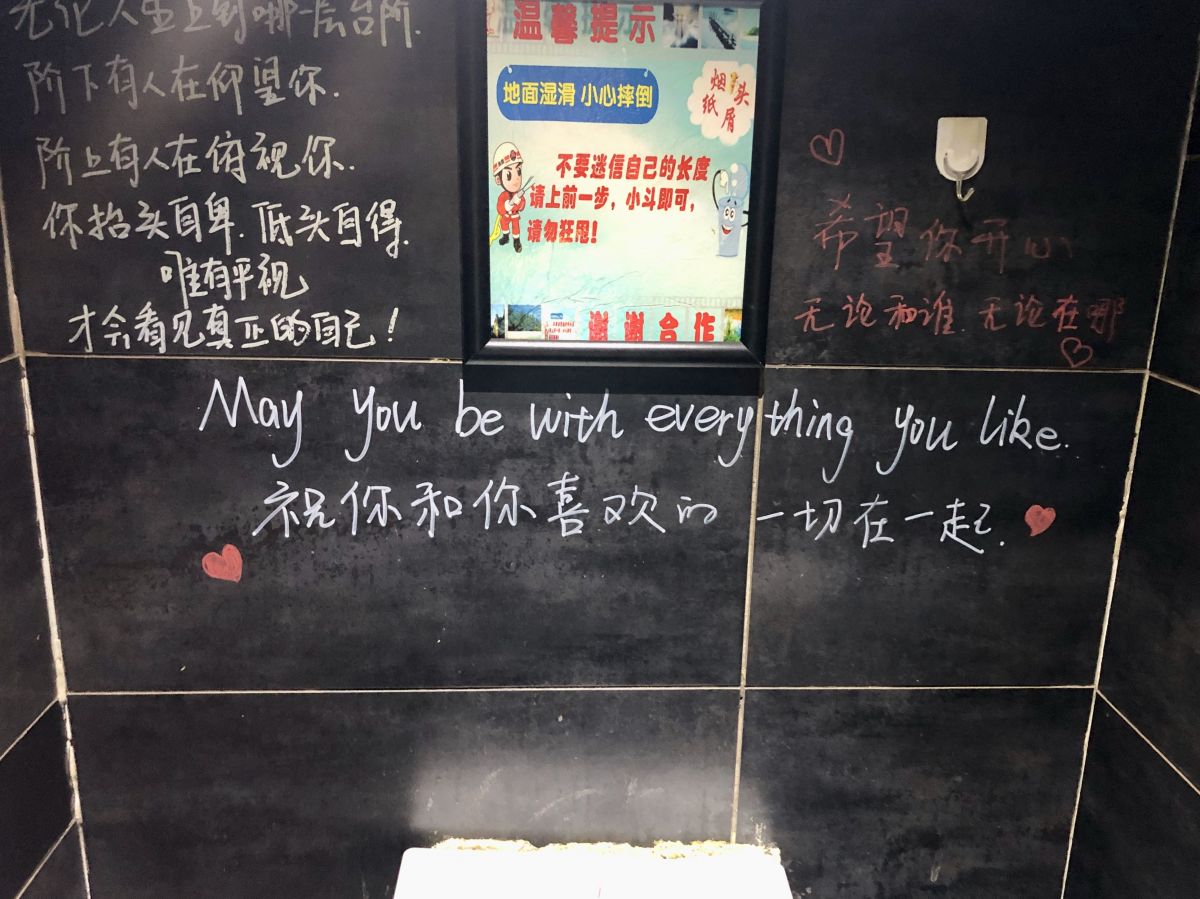 无论人生上到哪一层台阶.
阶下有人在仰望你.
阶上有人在俯视你.
你抬头自卑.低头自得.
唯有平视
才会看见真正的自己!
温馨提示
地面湿滑 小心摔倒
烟头
纸屑
不要迷信自己的长度
请上前一步，小斗即可，
请勿狂甩!
谢谢合作
希望你开心
无论和谁.无论在哪
May you be with everything you like.
祝你和你喜欢的一切在一起.